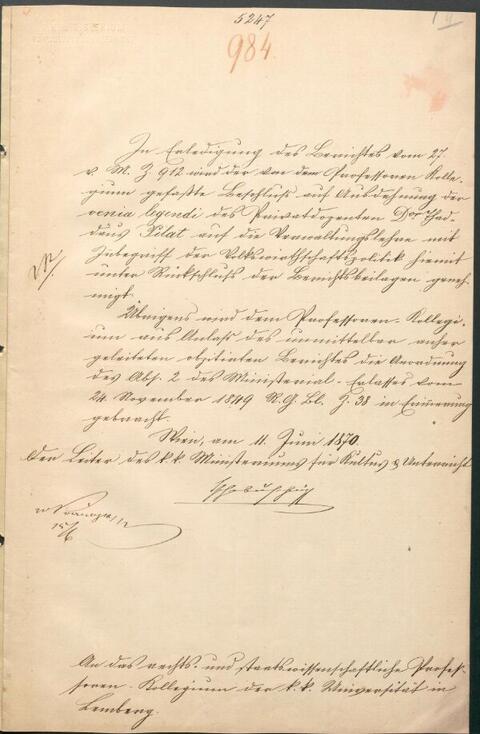 5247
984
In Erledigung des Berichtes vom 27.
v. M. Z 912 wird der von dem Professoren Kolle-
gium gefaßte Beschluß auf Ausdehnung der
venia legendi des Privatdozenten Dor Thad-
däus Pilat auf die Verwaltungslehre mit
Inbegriff der Volkswirthschaftspolitik hiemit
unter Rückschluß der Berichtsbeilagen geneh-
migt.
Übrigens wird dem Professoren-Kollegi-
um aus Anlaß des unmittelbar anher
geleiteten obzitirten Berichtes die Anordnung
des Abs. 2 des Ministerial-Erlasses vom
24. November 1849 R. G. Bl. Z. 38 in Erinnerung
gebracht.
Wien, am 11. Juni 1870.
Der Leiter des k.k. Ministeriums für Kultus & Unterricht
An das rechts- und staatswissenschaftliche Profes-
soren-Kollegium der k.k. Universität in
Lemberg.